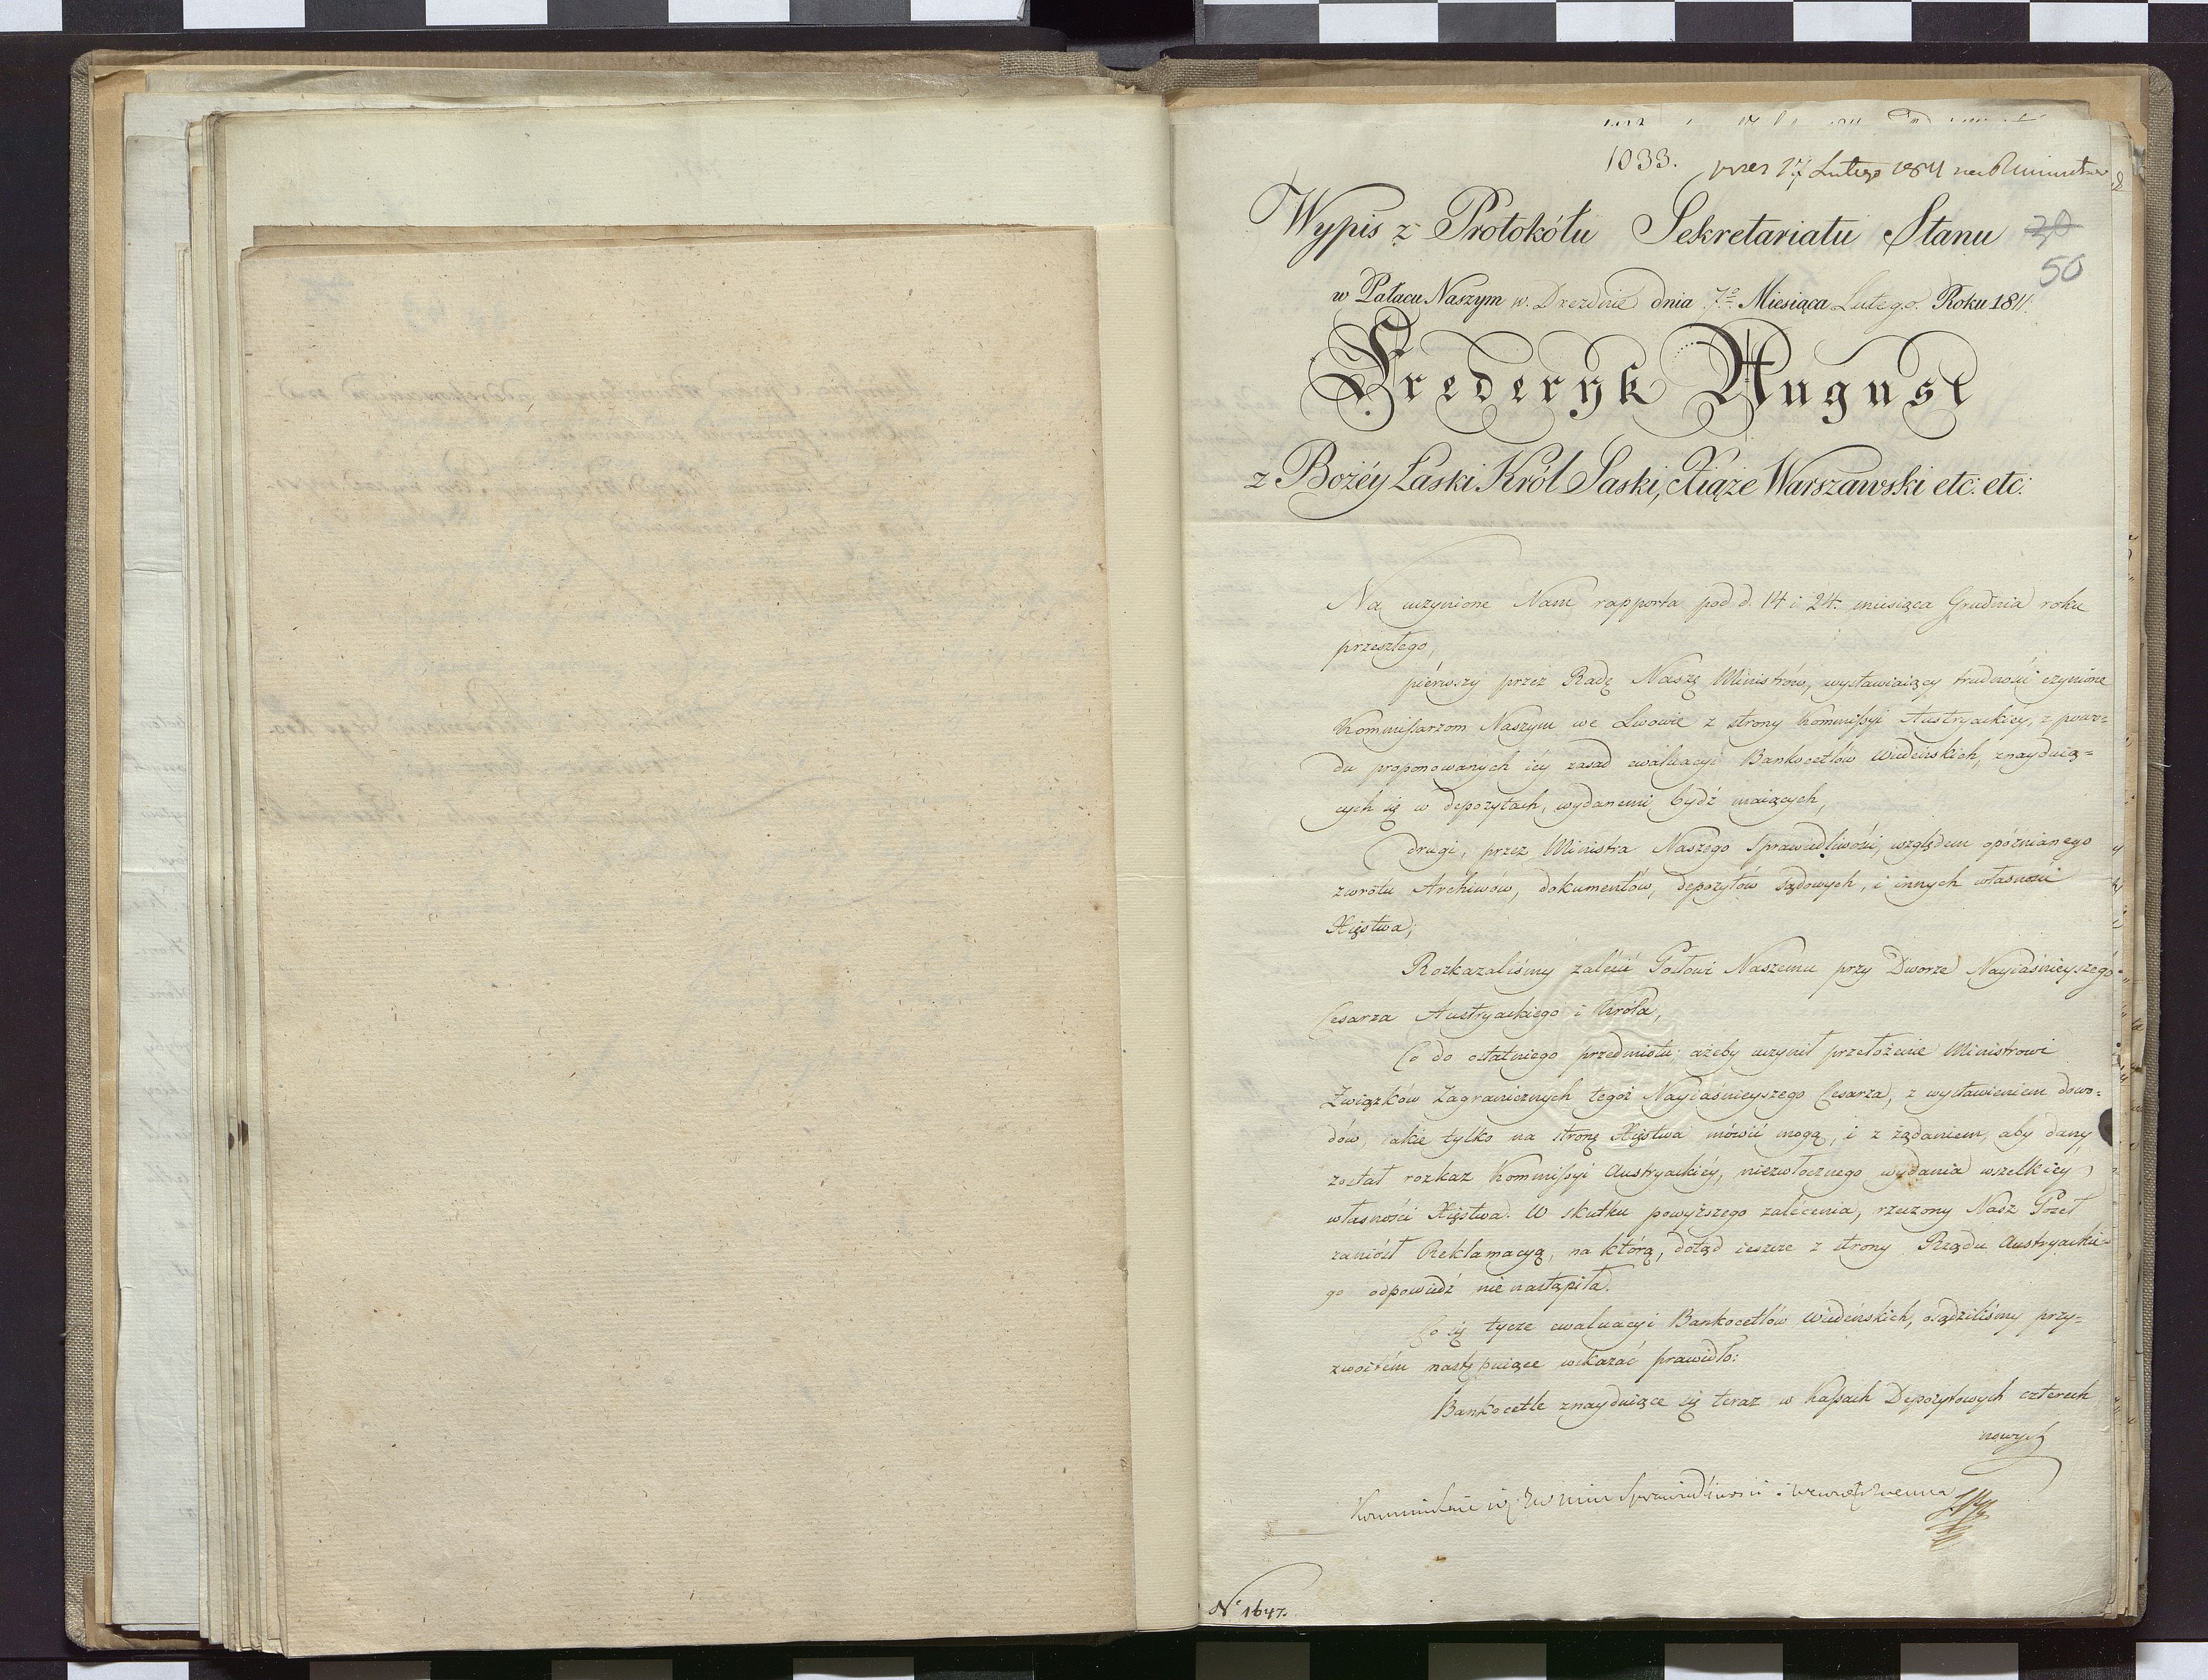 1033. prez 17 Lutego 1811
Wypis z Protokółu Sekretariatu Stanu 30
50
w Pałacu Naszym w. Dreznie dnia 7º Miesiąca Lutego Roku 1811.
Frederyk August
z Bożéy Łaski Król Saski, Xiąże Warszawski etc: etc:
Na uczynione Nam rapporta pod d. 14 i 24. miesiąca Grudnia roku
przeszłego,
piérwszy przez Radę Naszą Ministrów, wystawiaiący trudności czynione
Kommissarzom Naszym we Lwowie z strony Kommissyi Austryackiéy, z powo=
du proponowanych iéy zasad ewaluacyi Bankocetlów Wiedeńskich, znayduią=
cych się w depozytach, wydanemi bydź maiących,
drugi, przez Ministra Naszego Sprawiedliwości, względem opóźnianego
zwrotu Archiwów, dokumentów, depozytów sądowych, i innych własności
Xięstwa;
Rozkazaliśmy zalécić Posłowi Naszemu przy Dworze Nayiaśnieyszego
Cesarza Austryackiego i Króla,
Co do ostatniego przedmiotu: ażeby uczynił przełożenie Ministrowi
Związków Zagranicznych tegoż Nayiaśnieyszego Cesarza, z wystawieniem dowo=
dów, iakie tylko na stronę Xięstwa mówić mogą, i z żądaniem, aby dany
został rozkaz Kommissyi Austryackiéy, niezwłocznego wydania wszelkiey
własności Xięstwa. W skutku powyższego zalécenia, rzeczony Nasz Poseł
zaniósł Reklamacyą, na którą, dotąd ieszcze z strony Rządu Austryackie=
go odpowiedź nie nastąpiła.
Co się tycze ewaluacyi Bankocetlów Wiedeńskich, osądziliśmy przy=
zwoitém następuiące wskazać prawidło:
Bankocetle znayduiące się teraz w Kassach Depozytowych czterech
nowych
Sprawiedliwości i
N° 1647.